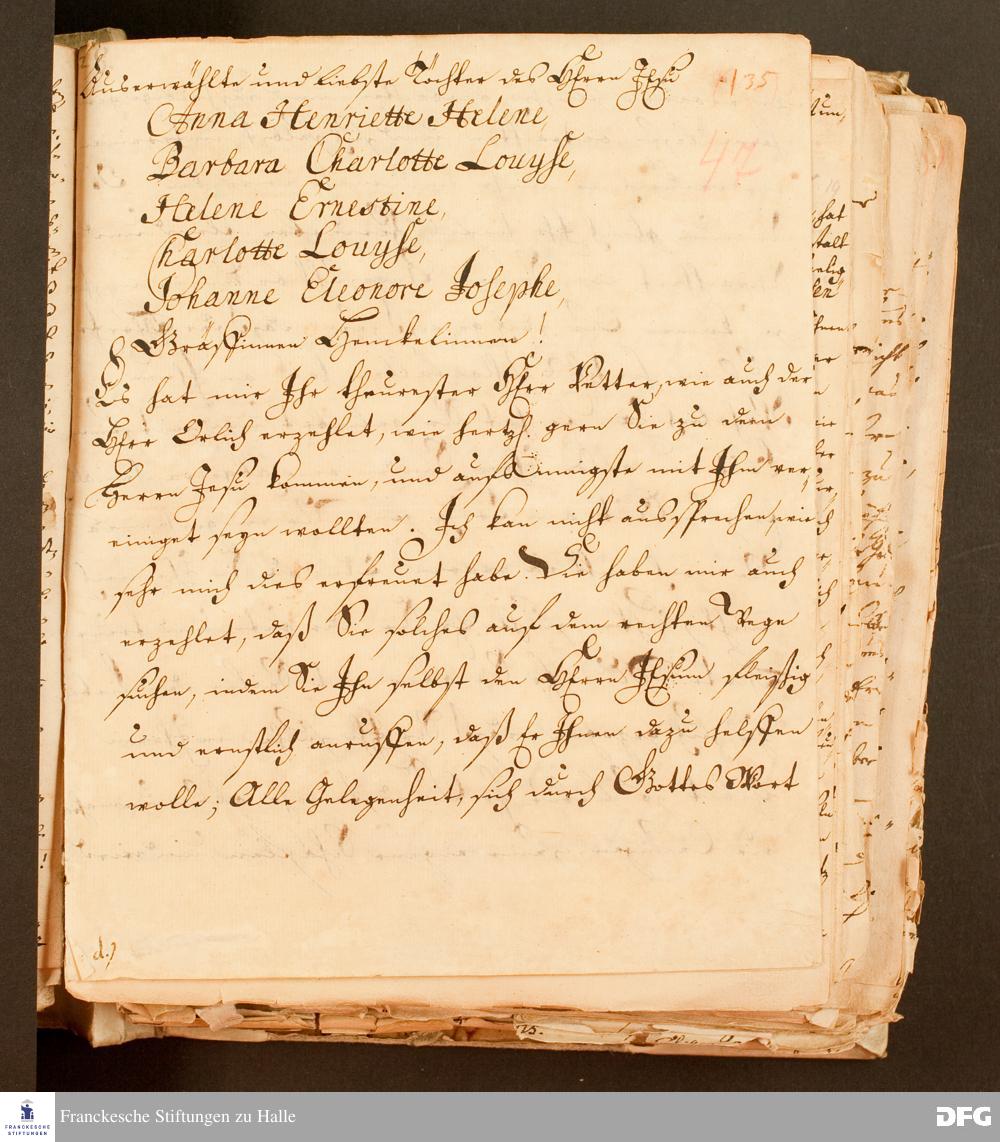 Auserwählte und liebste Töchter des HErrn JEsu
135
Anna Henriette Helene,
47
Barbara Charlotte Louyse,
Helene Ernestine,
Charlotte Louyse,
Johanne Eleonore Josephe,
Gräffinnen Henckelinnen!
Es hat mir Ihr theurester Herr Vetter, wie auch der
Herr Erlich erzehlet, wie hertzl. gern Sie zu dem
Herrn Jesu kommen, und aufs innigste mit Ihm ver-
einiget seyn wollten. Ich kan nicht aussprechen, wie
sehr mich dies erfreuet habe. Sie haben mir auch
erzehlet, daß Sie solches auf dem rechten Wege
suchen, indem Sie Ihn selbst den HErrn JEsum fleißig
und ernstlich anruffen, daß Er Ihnen dazu helffen
wolle; Alle Gelegenheit, sich durch Gottes Wort
d.)
FRANCKESCHE
STIFTUNGEN
Franckesche Stiftungen zu Halle
DFG